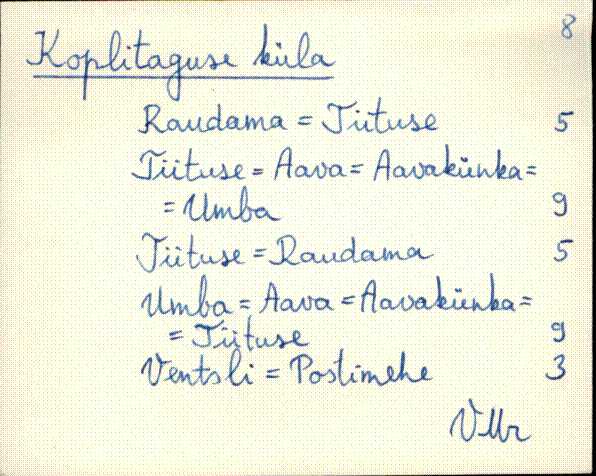 8
Koplitaguse küla
Raudama = Tiituse 5
Tiituse = Aava = Aavakünka =
= Umba 9
Tiituse = Raudama 5
Umba = Aava = Aavakünka =
= Tiituse 9
Ventsli = Postimehe 3
VMr